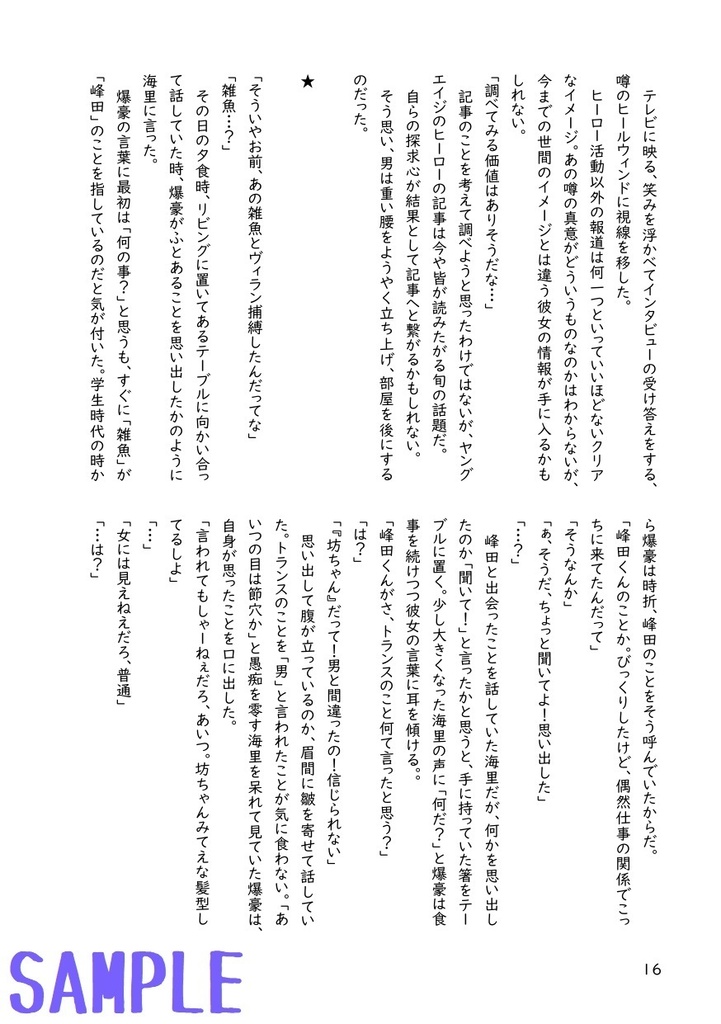 テレビに映る、笑みを浮かべてインタビューの受け答えをする、
噂のヒールウィンドに視線を移した。
ヒーロー活動以外の報道は何一つといっていいほどないクリア
なイメージ。あの噂の真意がどういうものなのかはわからないが、
今までの世間のイメージとは違う彼女の情報が手に入るかも
しれない。
「調べてみる価値はありそうだな…」
記事のことを考えて調べようと思ったわけではないが、ヤング
エイジのヒーローの記事は今や皆が読みたがる旬の話題だ。
自らの探求心が結果として記事へと繋がるかもしれない。
そう思い、男は重い腰をようやく立ち上げ、部屋を後にする
のだった。
★
「そういやお前、あの雑魚とヴィラン捕縛したんだってな」
「雑魚…？」
その日の夕食時、リビングに置いてあるテーブルに向かい合っ
て話していた時、爆豪がふとあることを思い出したかのように
海里に言った。
爆豪の言葉に最初は「何の事？」と思うも、すぐに「雑魚」が
「峰田」のことを指しているのだと気が付いた。学生時代の時か
ら爆豪は時折、峰田のことをそう呼んでいたからだ。
「峰田くんのことか。びっくりしたけど、偶然仕事の関係でこっ
ちに来てたんだって」
「そうなんか」
「ぁ、そうだ、ちょっと聞いてよ！思い出した」
「…？」
峰田と出会ったことを話していた海里だが、何かを思い出し
たのか「聞いて！」と言ったかと思うと、手に持っていた箸をテー
ブルに置く。少し大きくなった海里の声に「何だ？」と爆豪は食
事を続けつつ彼女の言葉に耳を傾ける。。
「峰田くんがさ、トランスのこと何て言ったと思う？」
「は？」
「『坊ちゃん』だって！男と間違ったの！信じられない」
思い出して腹が立っているのか、眉間に皺を寄せて話してい
た。トランスのことを「男」と言われたことが気に食わない。「あ
いつの目は節穴か」と愚痴を零す海里を呆れて見ていた爆豪は、
自身が思ったことを口に出した。
「言われてもしゃーねぇだろ、あいつ。坊ちゃんみてえな髪型し
てるしよ」
「…」
「女には見えねえだろ、普通」
「…は？」
16
SAMPLE